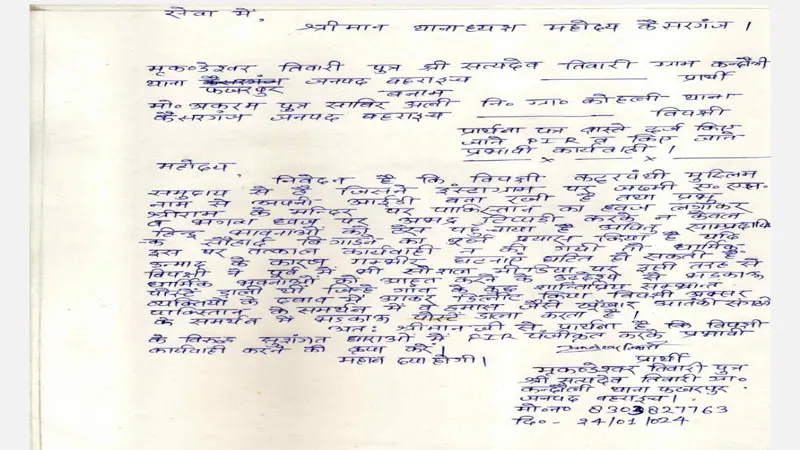 सेवा में,
श्रीमान थानाध्यक्ष महोदय कैसरगंज ।
मृकण्डेश्वर तिवारी पुत्र श्री सत्यदेव तिवारी ग्राम कन्दौली
थाना कैसरगंज जनपद बहराइच ——— प्रार्थी
फखरपुर बनाम
मो० अकरम पुत्र साबिर अली नि० ग्रा० कोहली थाना
कैसरगंज जनपद बहराइच ——— विपक्षी
प्रार्थना पत्र वास्ते दर्ज किए
जाने FIR व किए जाने
प्रभावी कार्यवाही ।
महोदय,
निवेदन है कि विपक्षी कट्टरपंथी मुस्लिम
समुदाय से है जिसने इंस्टाग्राम पर जख्मी
नाम से अपनी आईडी बना रखी है तथा प्रभु
श्रीराम के मन्दिर पर पाकिस्तान का ध्वज लगाकर
व भगवा ध्वज पर अभद्र टिप्पणी करके न केवल
हिन्दू भावनाओं को ठेस पहुंचाया है अपितु साम्प्रदायिक
सौहार्द बिगाड़ने का पूर्ण प्रयास किया है यदि
इस पर तत्काल कार्यवाही न की गयी तो धार्मिक
उन्माद के कारण गम्भीर घटनाएं घटित हो सकती है
विपक्षी ने पूर्व में भी सोशल मीडिया पर इसी तरह से
धार्मिक भावनाओं को आहत करने के उद्देश्य से भड़काऊ
पोस्टें डाली थी जिन्हें गांव के कुछ शान्तिप्रिय सम्भ्रान्त
व्यक्तियों के दबाव में आकर डिलीट किया विपक्षी अक्सर
पाकिस्तान के समर्थन में व हमास जैसे खूंखार आतंकी संगठनों
के समर्थन में भड़काऊ पोस्टें डाला करता है ।
अतः श्रीमान जी से प्रार्थना है कि विपक्षी
के विरुद्ध सुसंगत धाराओं में FIR पंजीकृत करके प्रभावी
कार्यवाही करने की कृपा करें।
महान दया होगी।
प्रार्थी
मृकण्डेश्वर तिवारी पुत्र
श्री सत्यदेव तिवारी ग्रा०
कन्दौली थाना फखरपुर
जनपद बहराइच।
मो०न० 8303827763
दि०- 24/01/024